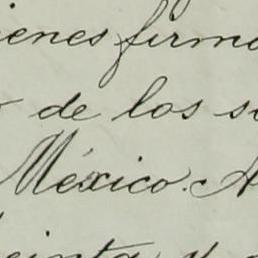 ienes firma
de los s
México. A
einta y